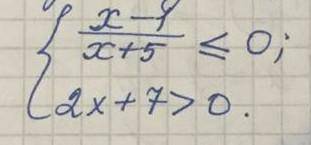 { (x-1)/(x+5) ≤ 0;
2x+7>0.